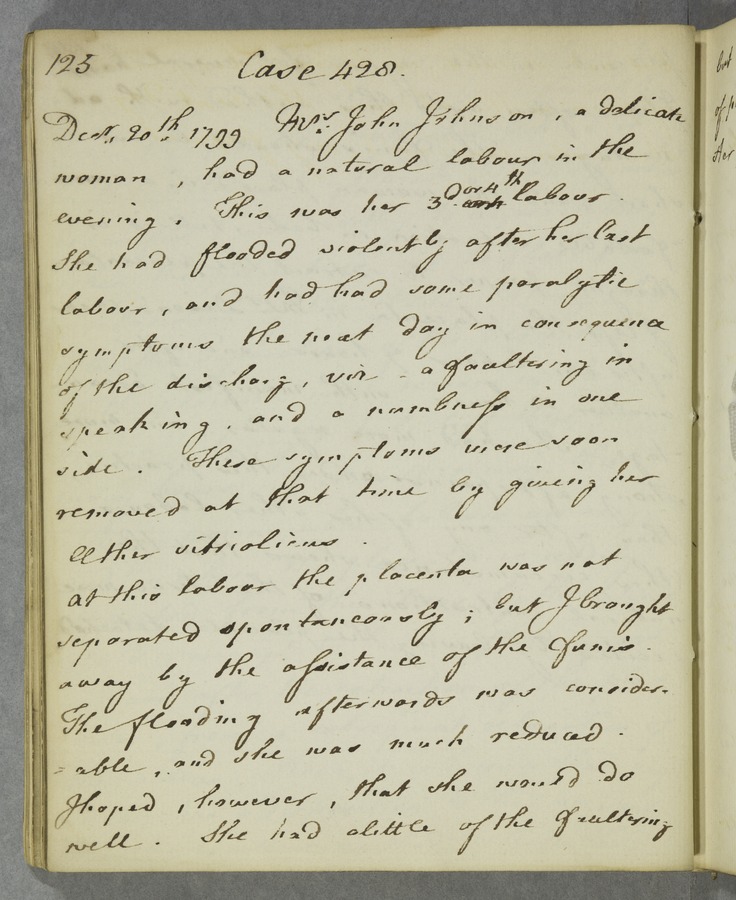 125 Case 428.
Decr. 20th 1799 Mrs. John Johnson, a delicate
woman, had a natural labour in the
evening. This was her 3d or 4th labour.
She had flooded violently after her last
labour, and had had some paralytic
symptoms the next day in consequence
of the discharg, viz - a faultering in
speaking, and a numbness in one
side. These symptoms were soon
removed at that time by giving her
Æther vitriolicus.
At this labour the placenta was not
separated spontaneously; but I brought
away by the assistance of the funis.
The flooding afterwards was consider-
=able, and she was much reduced.
I hoped, however, that she would do
well. She had a little of the faultering
but
of p
Her